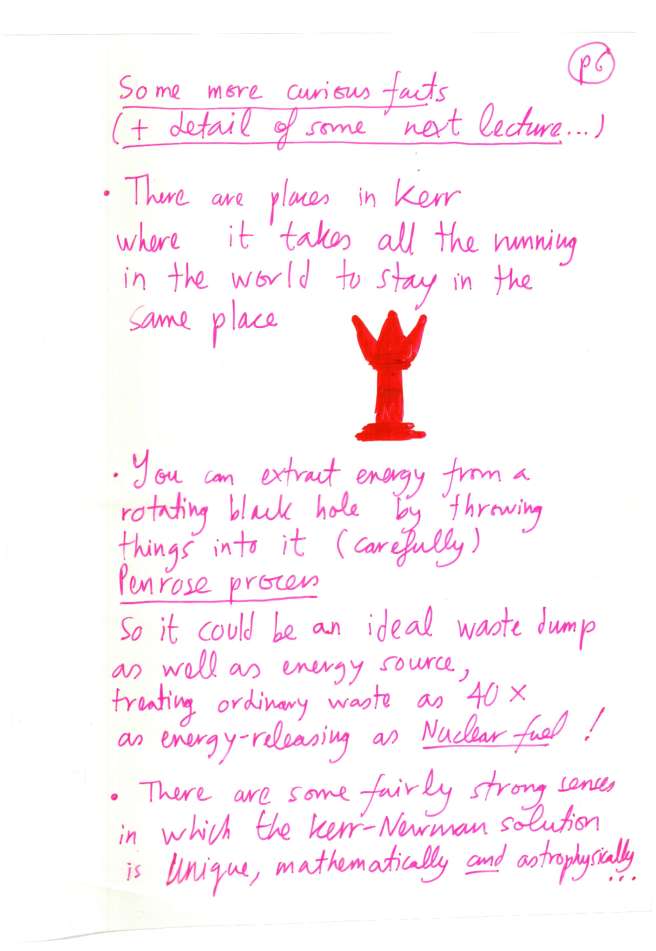 p6
Some more curious facts
(+ detail of some next lecture...)
• There are places in Kerr
where it takes all the running
in the world to stay in the
same place
• You can extract energy from a
rotating black hole by throwing
things into it (carefully)
Penrose process
So it could be an ideal waste dump
as well as energy source,
treating ordinary waste as 40 ×
as energy-releasing as Nuclear fuel !
• There are some fairly strong senses
in which the Kerr-Newman solution
is Unique, mathematically and astrophysically...